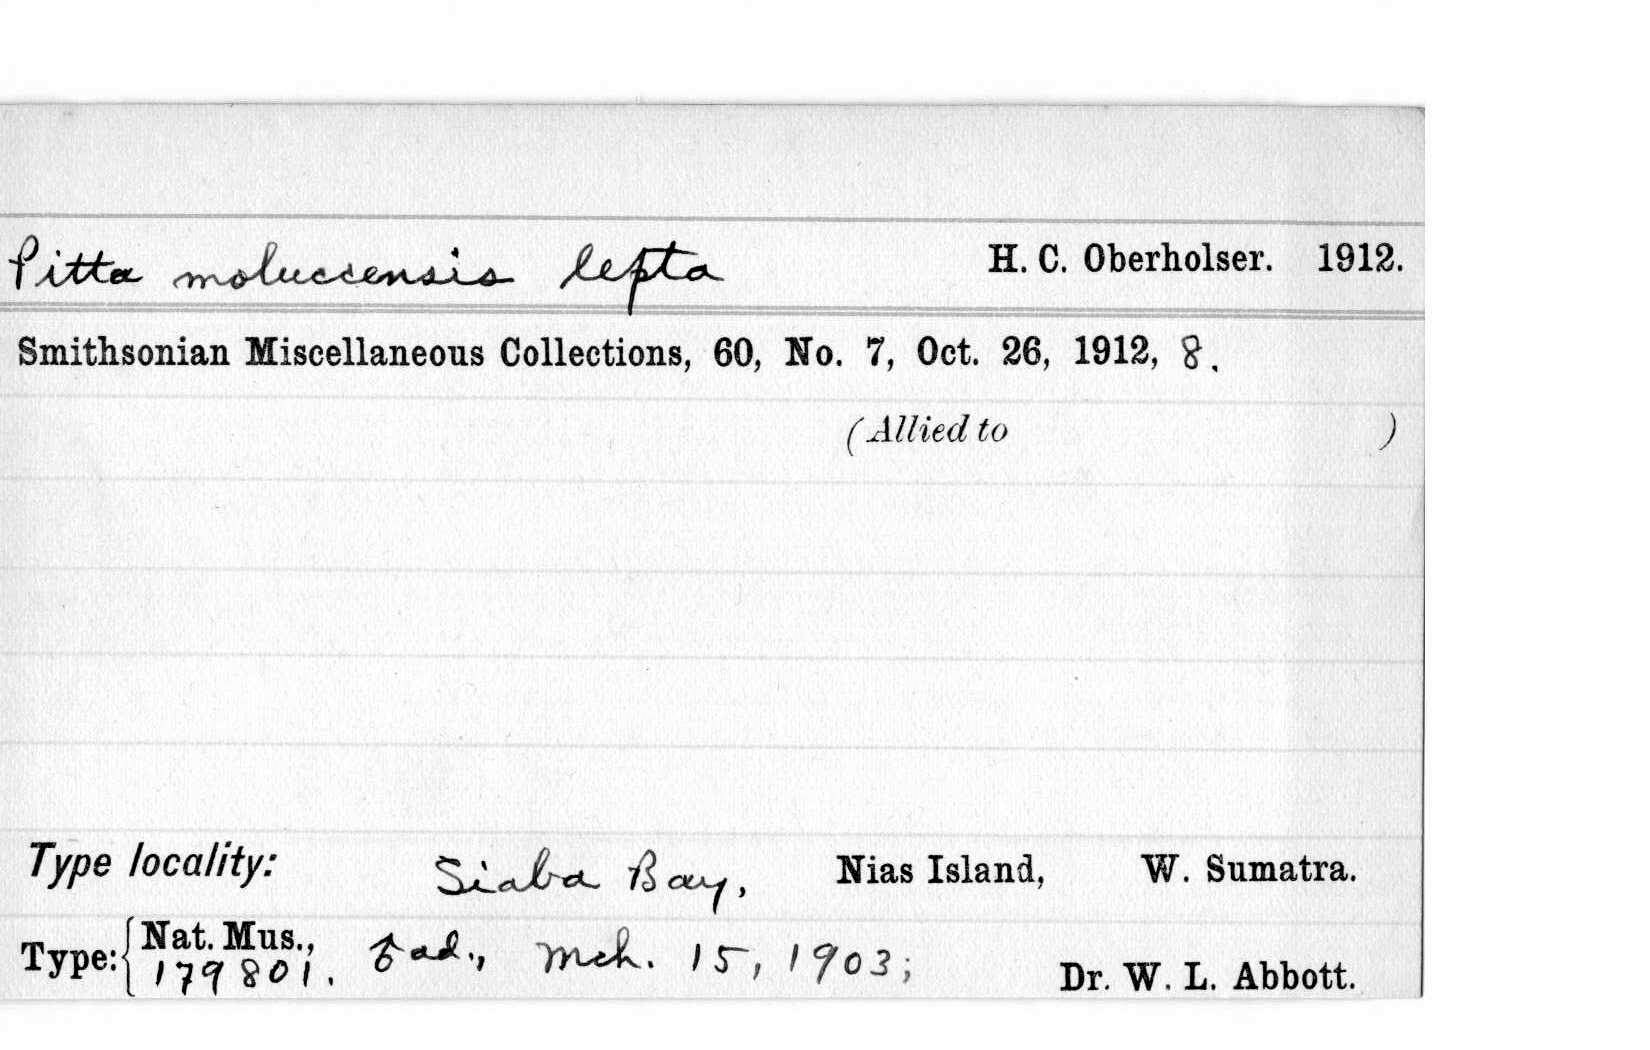 Pitta moluccensis lepta H. C. Oberholser. 1912.
Smithsonian Miscellaneous Collections, 60, No. 7, Oct. 26, 1912, 8.
(Allied to )
Type locality: Siaba Bay, Nias Island, W. Sumatra.
Type: { Nat. Mus., 179801. ad., Mch. 15, 1903; Dr. W. L. Abbott.